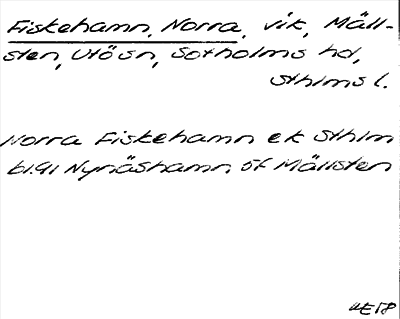 Fiskehamn, Norra, vik, Mäll-
sten, Utö sn, Sotholms hd,
Sthlms l.
Norra Fiskehamn ek Sthlm
bl.91 Nynäshamn, öf Mällsten